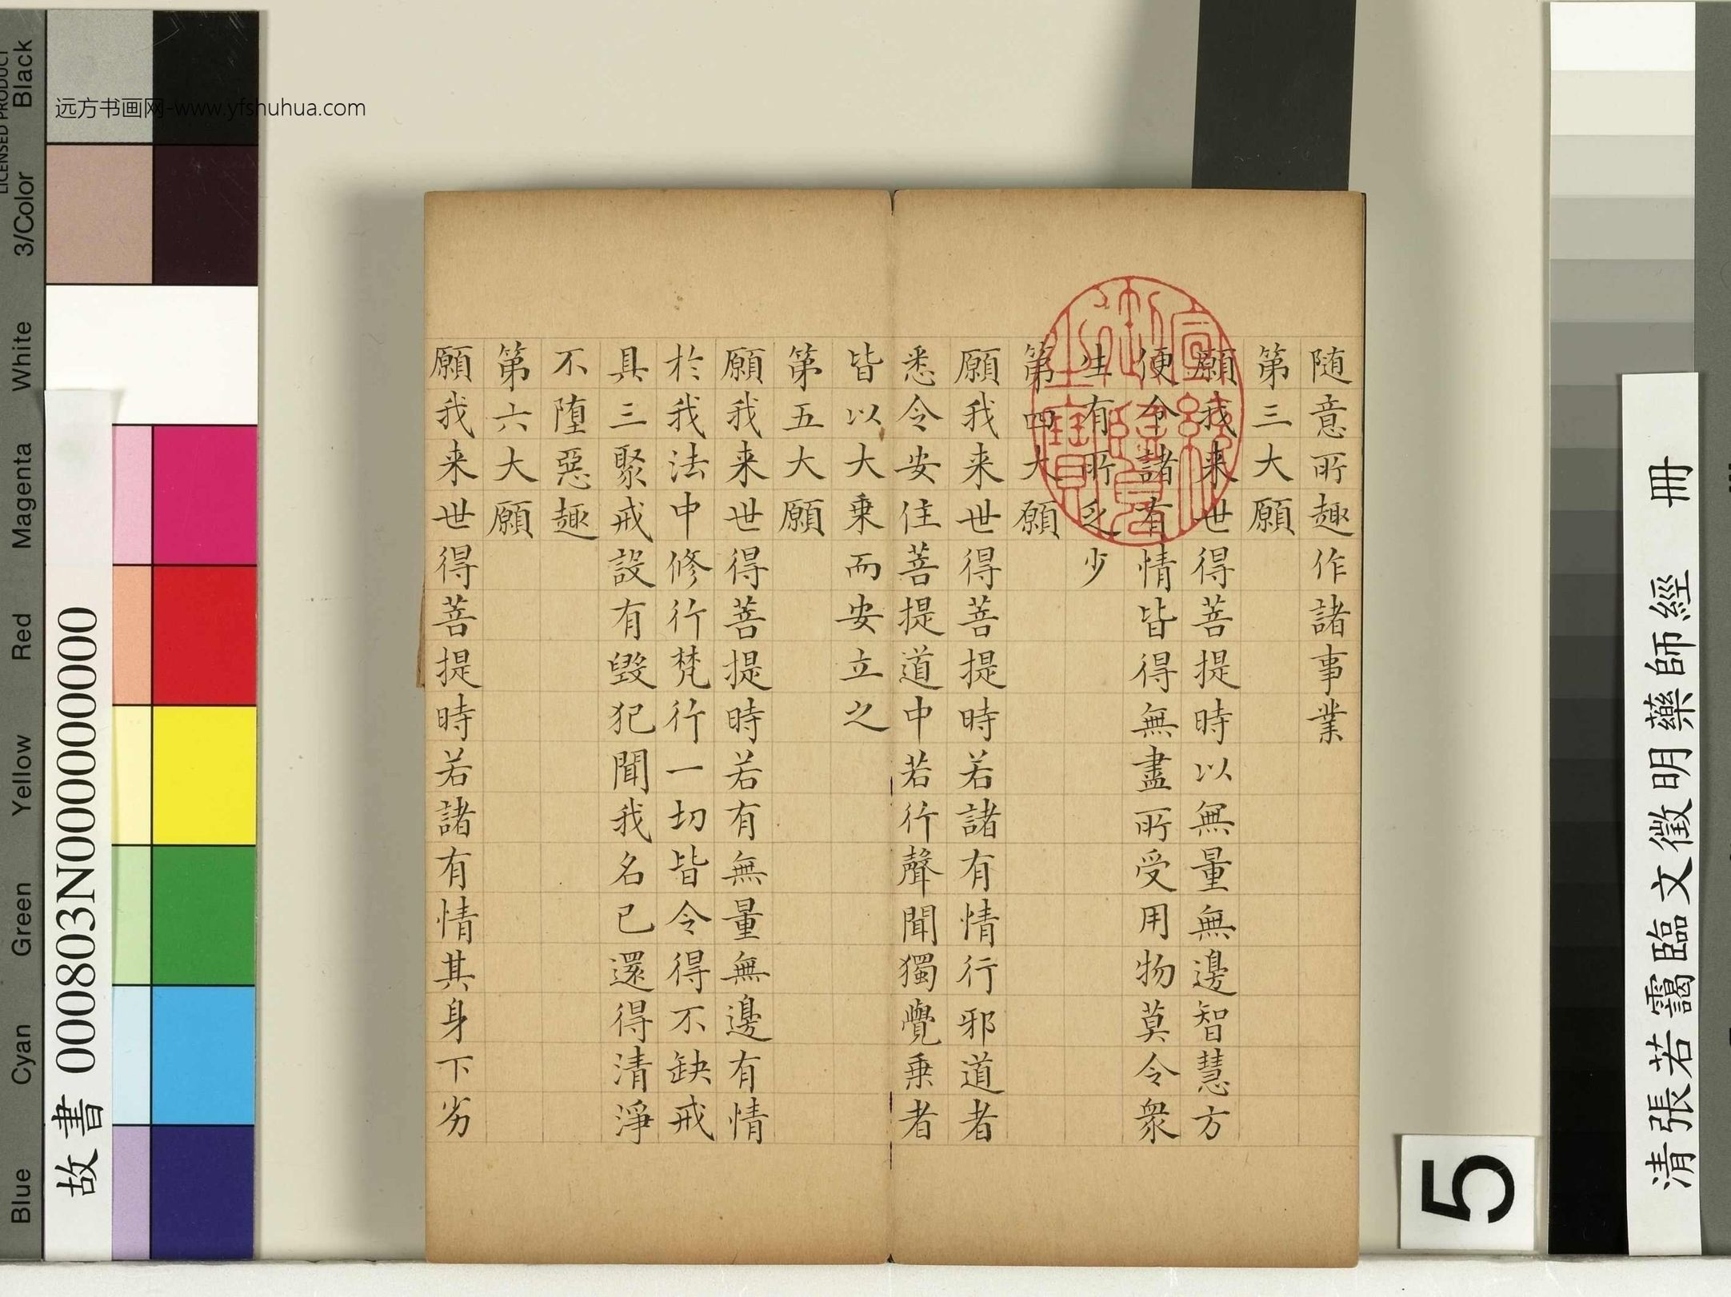 随意所趣作諸事業
第三大願
願我来世得菩提時以無量無邊智慧方
便令諸有情皆得無盡所受用物莫令衆
生有所乏少
第四大願
願我来世得菩提時若諸有情行邪道者
悉令安住菩提道中若行聲聞獨覺乗者
皆以大乗而安立之
第五大願
願我来世得菩提時若有無量無邊有情
於我法中修行梵行一切皆令得不缺戒
具三聚戒設有毁犯聞我名已還得清淨
不墮惡趣
第六大願
願我来世得菩提時若諸有情其身下劣
清張若靄臨文徵明藥師經 冊
5
故書 000803N000000000
远方书画网-www.yfshuhua.com
LICENSED PRODUCT
Black
3/Color
White
Magenta
Red
Yellow
Green
Cyan
Blue